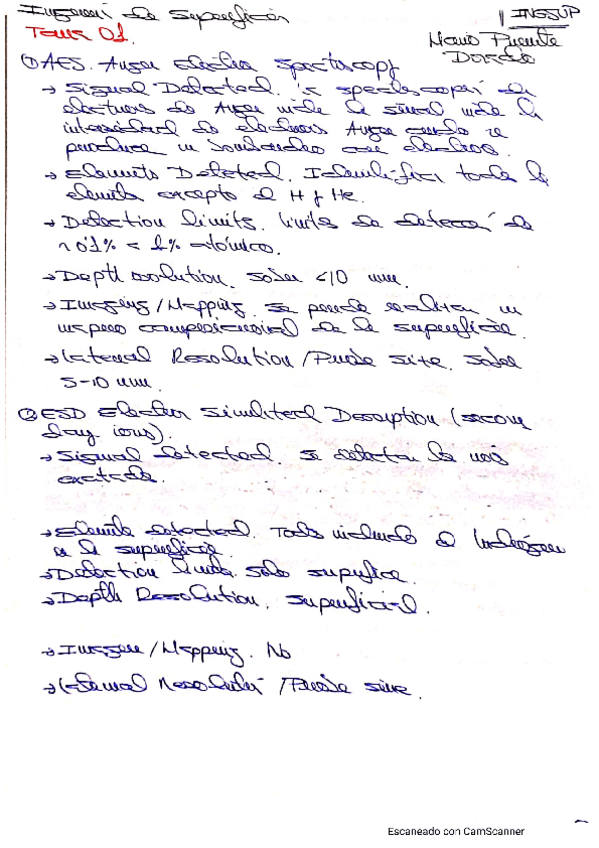 Ingeniería de Superficies | INGSUP
Tema 01. Mario Puente
① AES. Auger electron Spectroscopy
→ Signal Detected. espectroscopí de
electrones de Auger mide la señal mide la
intensidad de electrones Auger cuando se
produce un bombardeo con electrones.
→ Elements Detected. Identifica todos los
elementos excepto el H y He.
→ Detection limits. límites de detección de
0'1% 1% atómico.
→ Depth resolution. sobre <10 nm.
→ Imaging / Mapping. se puede realizar un
mapeo composicional de la superficie.
→ Lateral Resolution / Probe size. sobre
5-10 nm.
② ESD Electron Desorption (secon
dary ions).
→ Signal detected. se detectan los iones
→ detected. Todos incluido el hidrógeno
en la superficie.
→ Detection limits. Solo superficie.
→ Depth Resolution. superficial.
→ Imagen / Mapping. No
→ Lateral / Probe size.
Escaneado con CamScanner